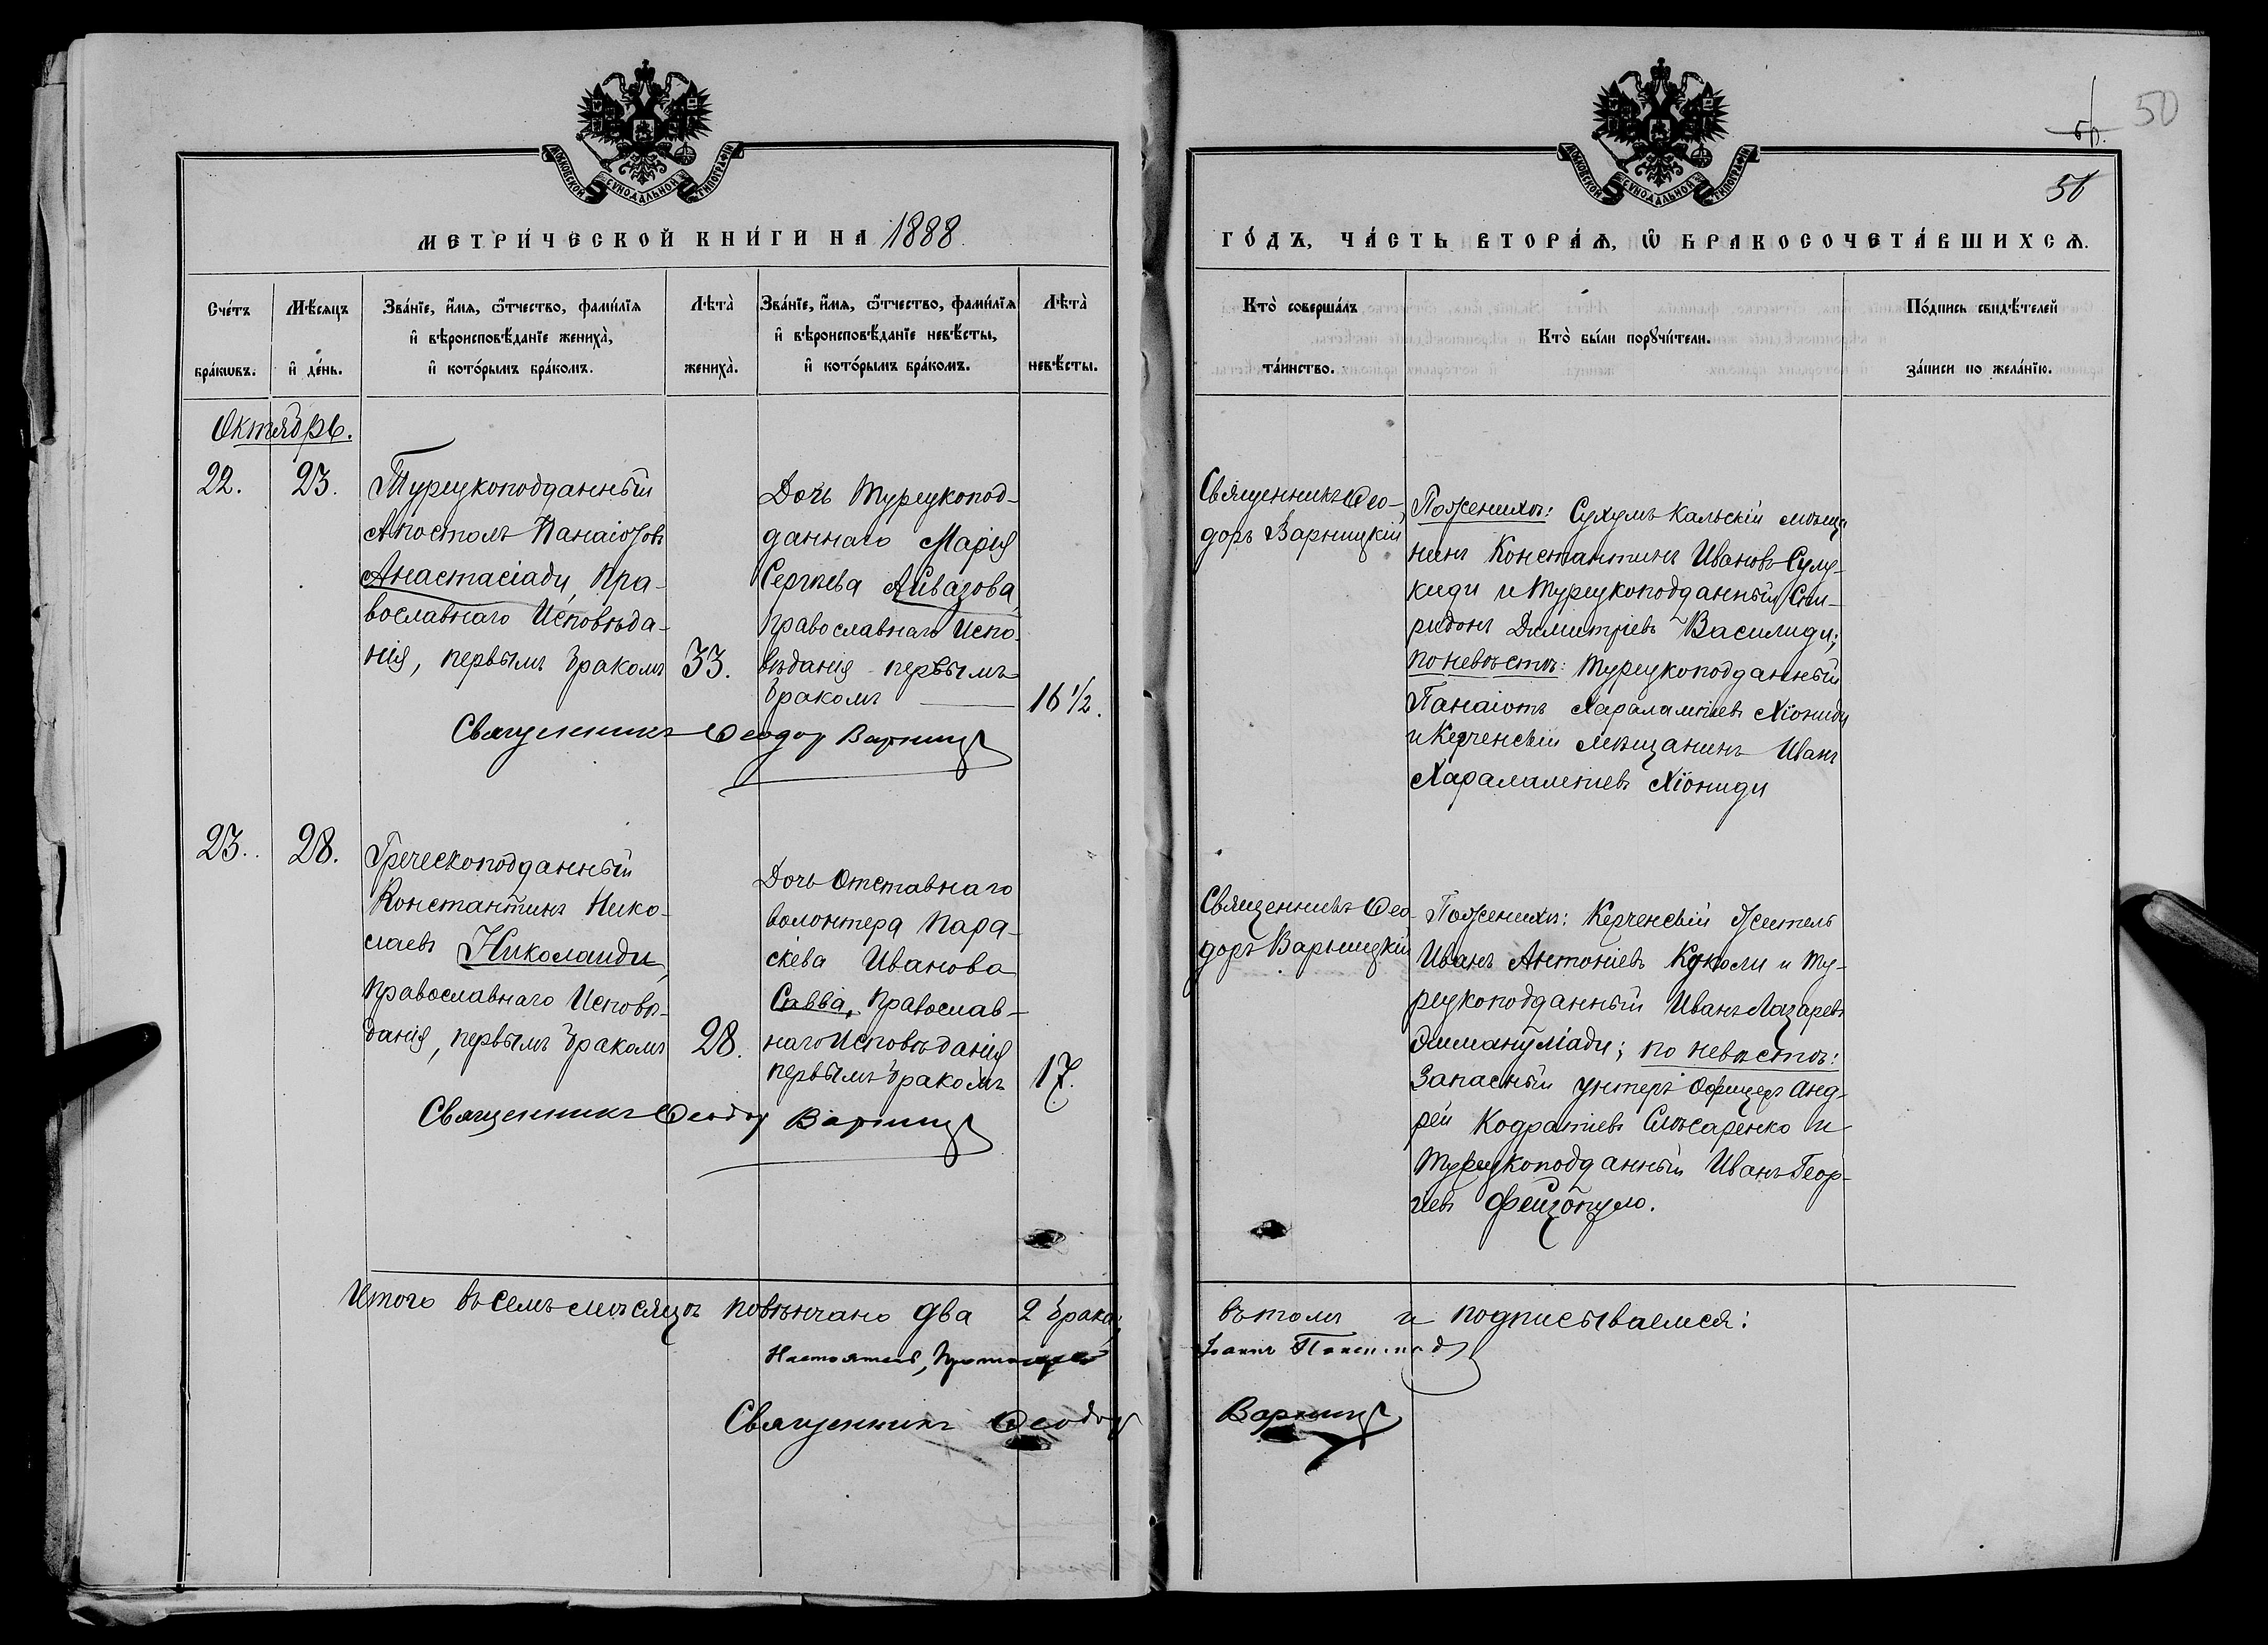 50
50
МОСКОВСКОЙ СѴНОДАЛЬНОЙ ТИПОГРАФІИ
МЕТРИ́ЧЕСКОЙ КНИ́ГИ НА 1888
Сче́тъ бра́кѡвъ.
Мѣ́сѧцъ и҆ де́нь.
Зва́нїе, и҆́мѧ, ѻ҆́тчество, фами́лїѧ
и҆ вѣроисповѣ́данїе жениха̀,
и҆ кото́рымъ бра́комъ.
Лѣта̀ жениха̀.
Зва́нїе, и҆́мѧ, ѻ҆́тчество, фами́лїѧ
и҆ вѣроисповѣ́данїе невѣ́сты,
и҆ кото́рымъ бра́комъ.
Лѣта̀ невѣ́сты.
Октябрь.
22.
23.
Турецкоподданный
Апостолъ Панаіотовъ
Анастасіади, пра-
вославнаго Исповѣда-
нія, первымъ бракомъ
33.
Дочь Турецкопод-
даннаго Марія
Сергѣева Айвазова,
православнаго Испо-
вѣданія первымъ
бракомъ
16 1/2.
Священникъ Ѳеодоръ Варниц
23.
28.
Греческоподданный
Константинъ Нико-
лаевъ Николаиди,
Православнаго Исповѣ-
данія, первымъ бракомъ
28.
Дочь Отставнаго
волонтера Пара-
скева Иванова
Савва, Православ-
наго Исповѣданія
первымъ бракомъ
17.
Священникъ Ѳеодор Варниц
Итого въ семъ мѣсяцѣ повѣнчано два 2 брака;
Настоятель,
Священникъ Ѳеодор
МОСКОВСКОЙ СѴНОДАЛЬНОЙ ТИПОГРАФІИ
ГО́ДЪ, ЧА́СТЬ ВТОРА́Ѧ, Ѽ БРАКОСОЧЕТА́ВШИХСѦ.
Кто̀ соверша́лъ
та́инство.
Кто̀ бы́ли порꙋчи́тели.
По́дпись свидѣ́телей
за́писи по жела́нїю.
Священникъ Ѳео-
доръ Варницкій
По женихѣ: Сухумъ Кальскій мѣща
нинъ Константинъ Ивановъ
киди и Турецкоподданный Спи-
ридонъ Димитріевъ Василиди;
по невѣстѣ: Турецкоподданный
Панаіотъ Харалампіевъ Хіониди
и Керченскій мѣщанинъ Иванъ
Харалампіевъ Хіониди
Священникъ Ѳео-
доръ Варницкій
По женихѣ: Керченскій житель
Иванъ Антоніевъ и Ту-
рецкоподданный Иванъ Лазаревъ
Эммануліади; по невѣстѣ:
Запасный унтеръ Офицеръ Анд-
рей Кодратіевъ Слюсаренко и
Турецкоподданный Иванъ Геор-
гіевъ Фейзопуло.
въ томъ и подписываемся:
Іоаннъ
Варниц